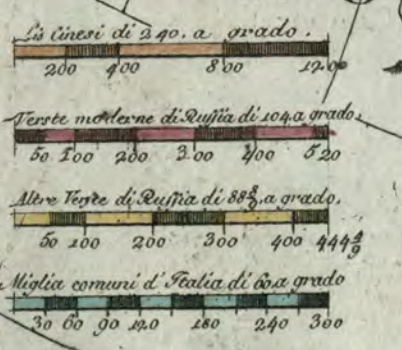 Lis Cinesi di 240. a grado.
200 400 800 1200
Verste moderne di Ruſſia di 104. a grado.
50 100 200 300 400 520
Altre Verste di Ruſſia di 88 8/9. a grado.
50 100 200 300 400 444 4/9
Miglia comuni d'Italia di 60. a grado
30 60 90 120 180 240 300